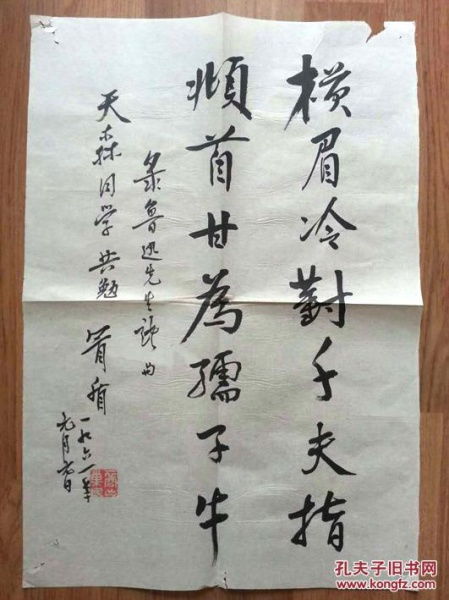 横眉冷對千夫指
頫首甘為孺子牛
录鲁迅先生诗句
天森同学共勉
一九六一年
元月
孔夫子旧书网
www.kongfz.com